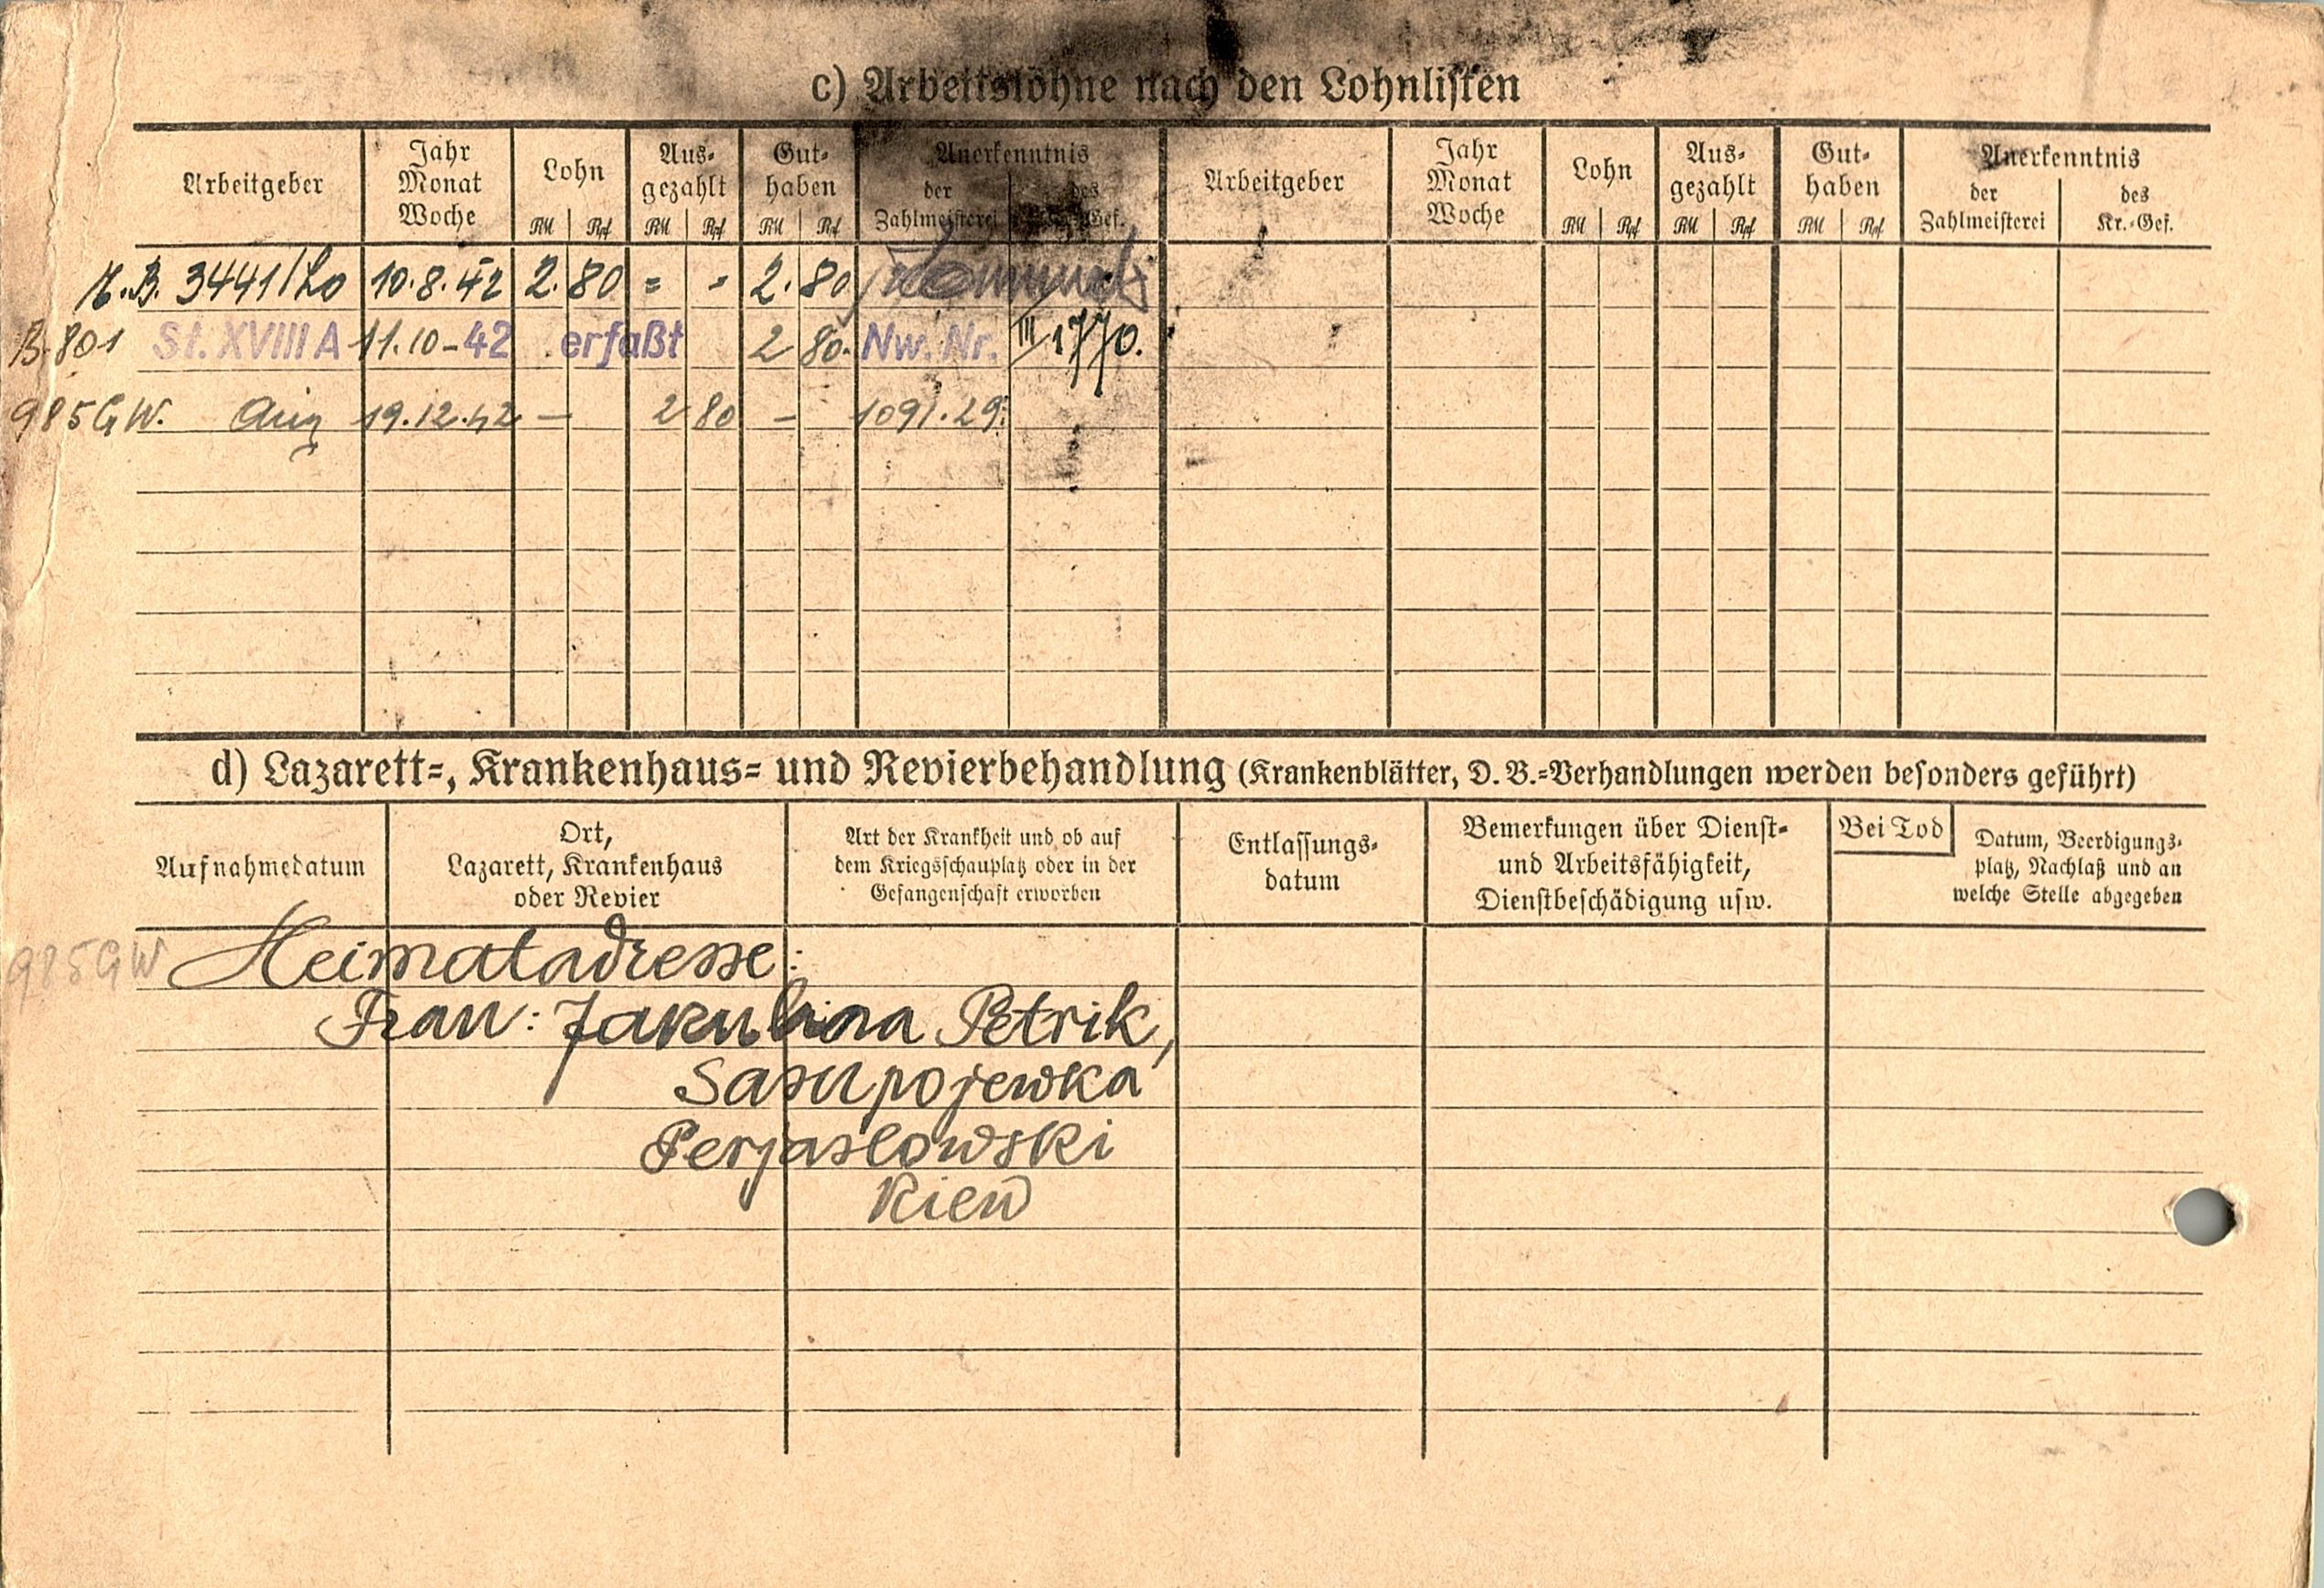 c) Arbeitslöhne nach den Lohnlisten
Arbeitgeber Jahr Monat Woche Lohn RM Rpf Aus-gezahlt RM Rpf Gut-haben RM Rpf Anerkenntnis der Zahlmeisterei des Kr.-Gef. Arbeitgeber Jahr Monat Woche Lohn RM Rpf Aus-gezahlt RM Rpf Gut-haben RM Rpf Anerkenntnis der Zahlmeisterei des Kr.-Gef.
3441/Lo 10.8.42 2.80 = = 2.80
B.801 St. XVIII A 11.10-42 erfaßt 2 80. Nw. Nr. III/1770.
985GW. 19.12.42 – 2 80 – 1091.29.
d) Lazarett-, Krankenhaus- und Revierbehandlung (Krankenblätter, D. B.-Verhandlungen werden besonders geführt)
Aufnahmedatum
Ort,
Lazarett, Krankenhaus
oder Revier
Art der Krankheit und ob auf
dem Kriegsschauplatz oder in der
Gefangenschaft erworben
Entlassungs-
datum
Bemerkungen über Dienst-
und Arbeitsfähigkeit,
Dienstbeschädigung usw.
Bei Tod
Datum, Beerdigungs-
platz, Nachlaß und an
welche Stelle abgegeben
985GW Heimatadresse:
Frau: Petrik,
Sasupojewka
Perjaslowski
Kiew